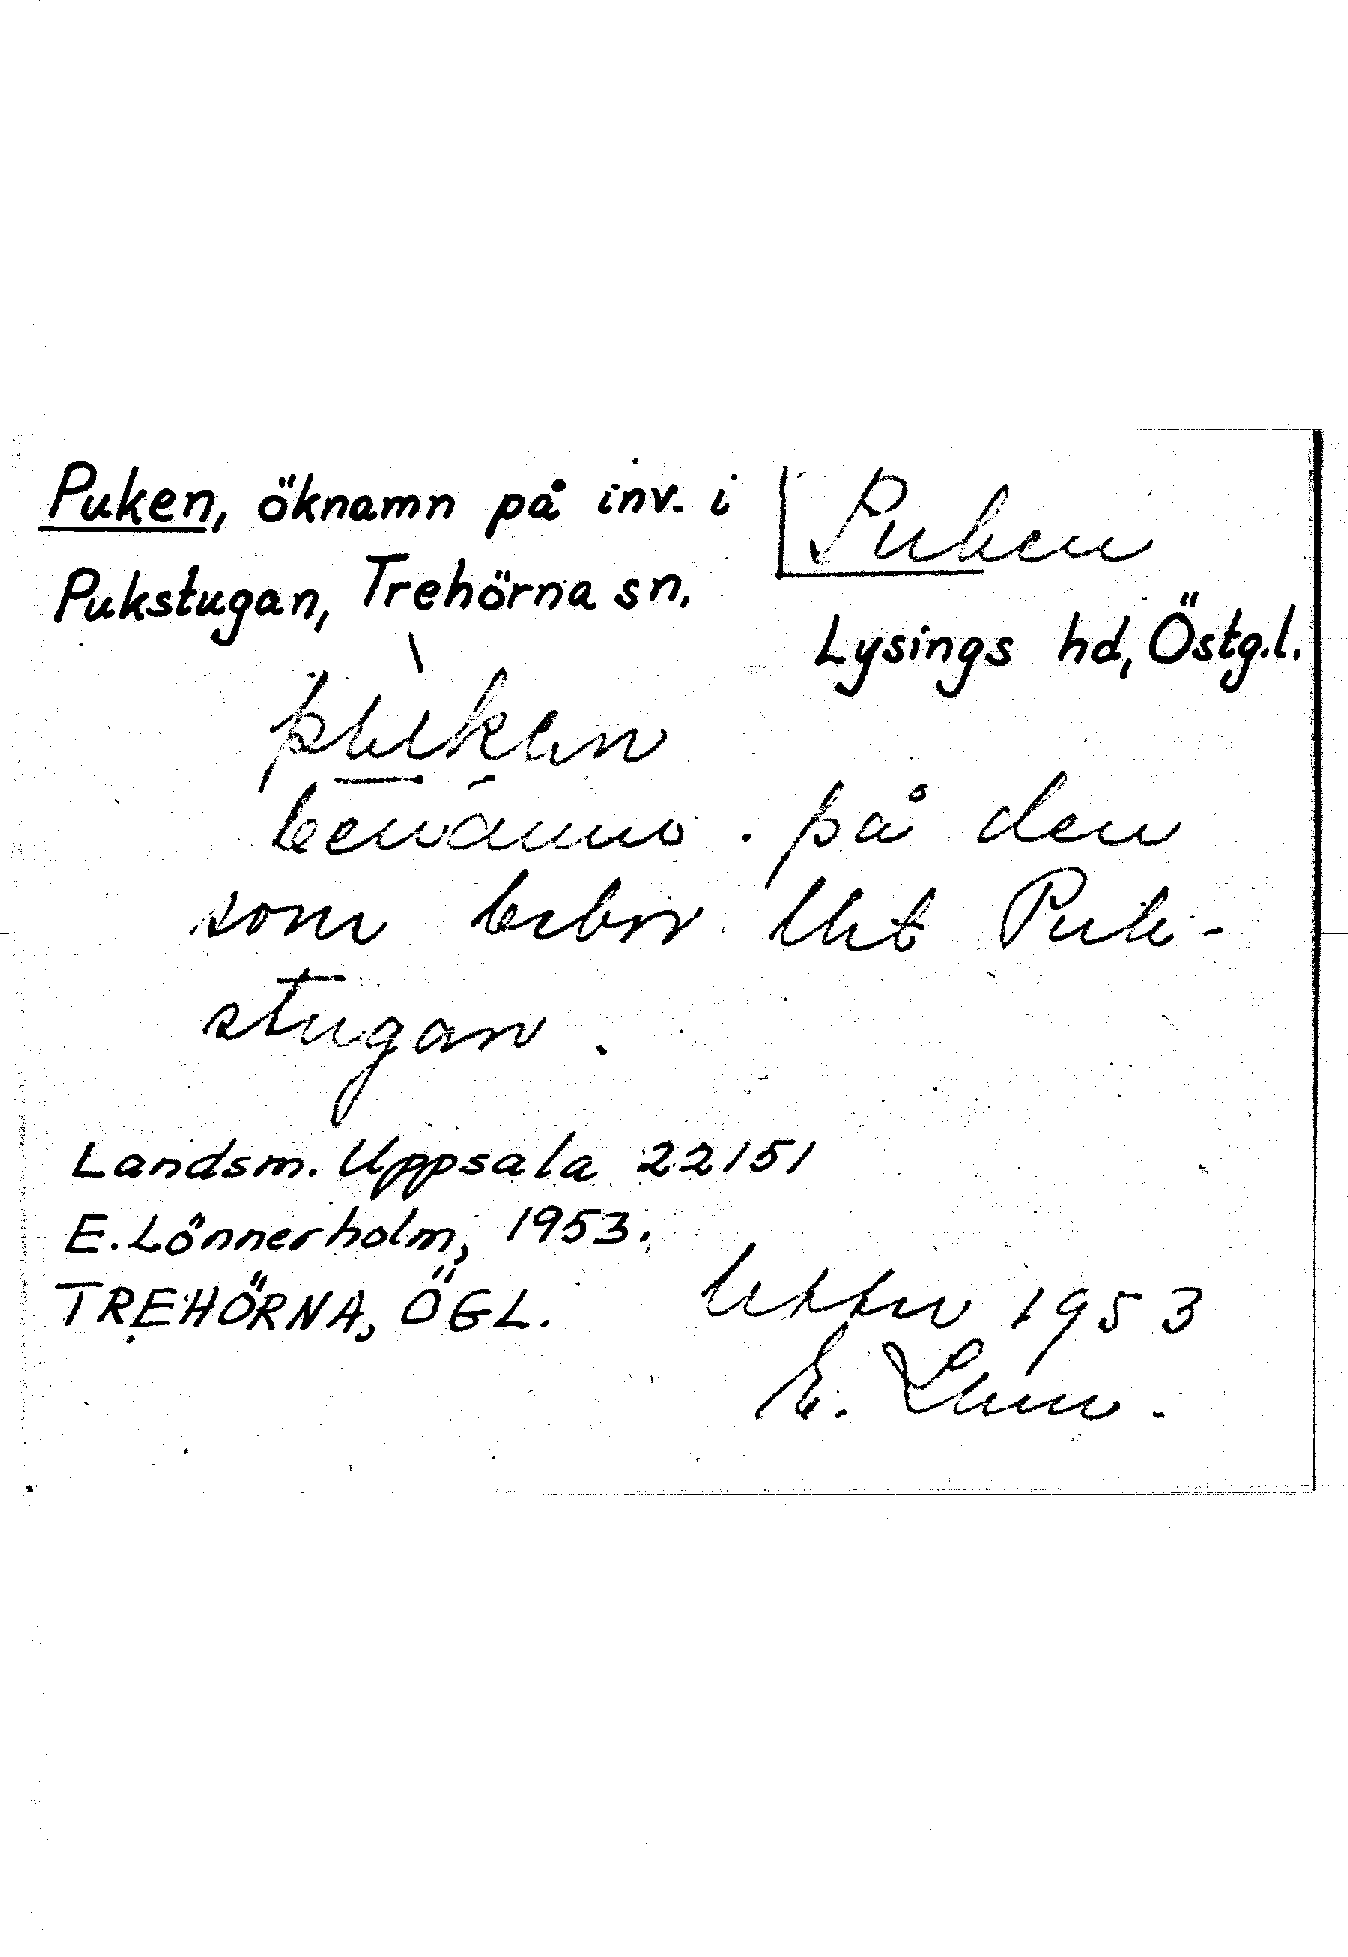 Puken, öknamn på inv. i
Pukstugan, Trehörna sn.
Puken
Lysings hd, Östg.l.
benämn. på den
som bebor lht Puk-
stugan.
Landsm. Uppsala 22151
E. Lönnerholm, 1953.
TREHÖRNA, ÖGL.
1953
E.